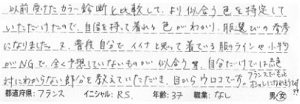 以前受けたカラー診断と比較して、より似合う色を特定して
いただけたので、自信を持って着れる色がわかり、服選びの参考
になりました。又、普段自分でイイナと思って着ている服のラインや小物
がNGで、全く予想していないものが似合う等、自分だけでは絶
対にわからない部分を教えていただき、目からウロコです。フランスでも
都道府県：フランス イニシャル：R.S. 年齢：37 職業：なし 男・女